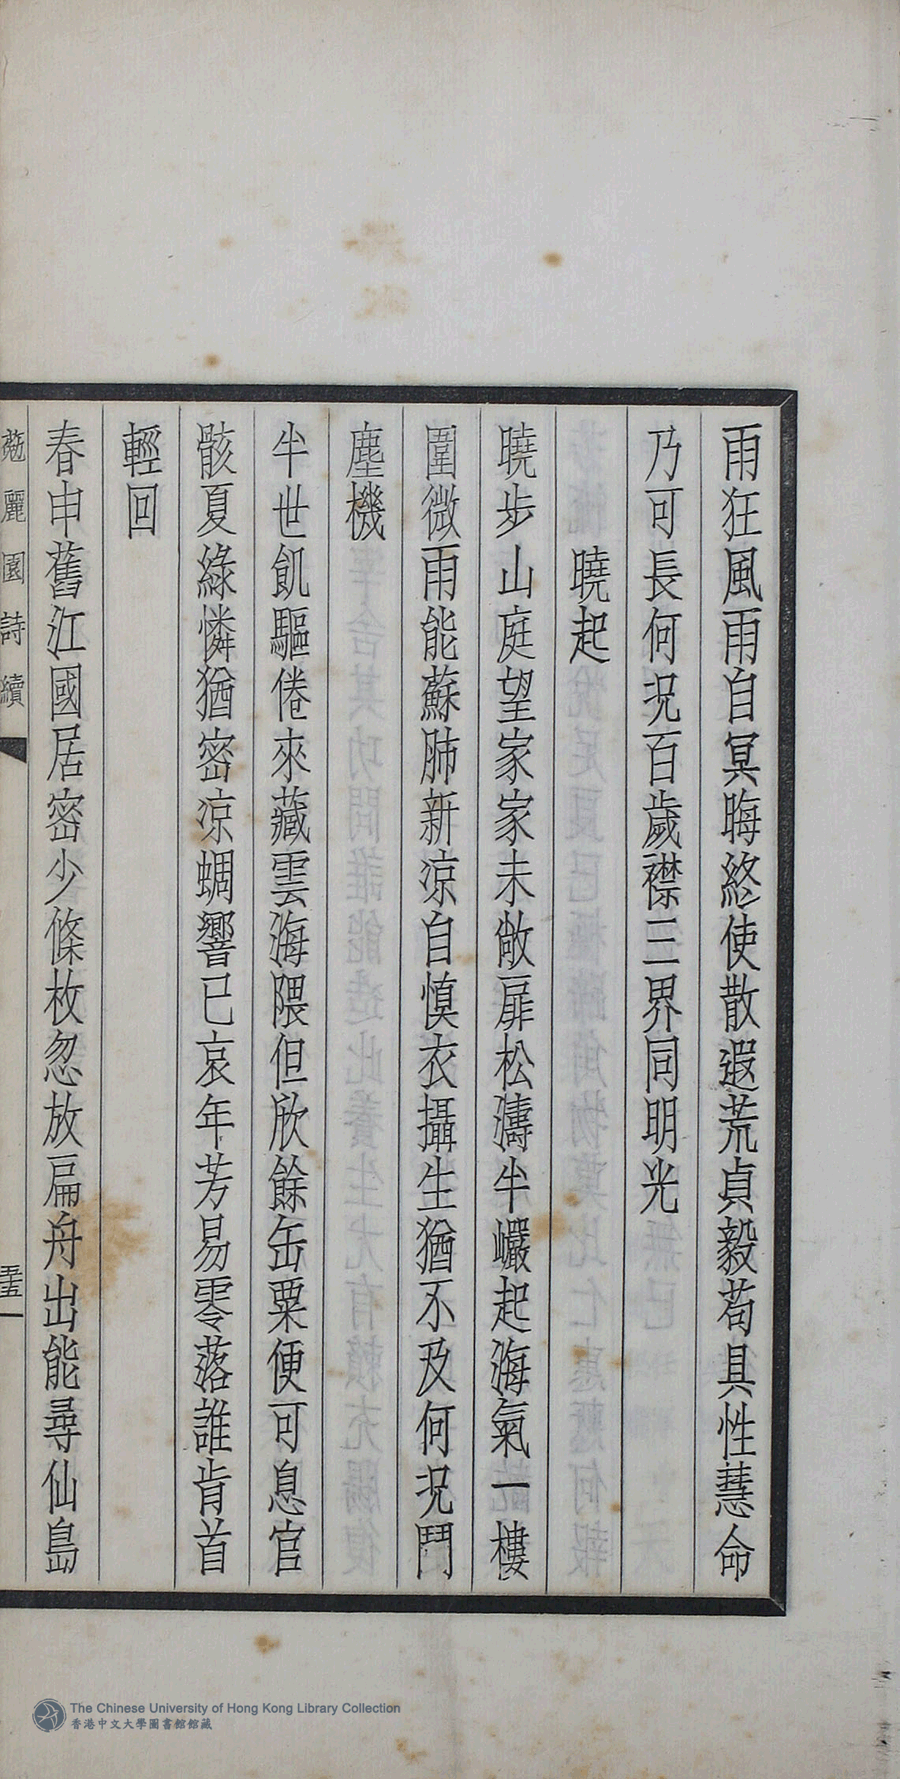 雨狂風雨自冥晦終使散遐荒貞毅苟具性慧命
乃可長何況百歲襟三界同明光
曉起
曉步山庭望家家未敞扉松濤半巘起海氣一樓
圍微雨能蘇肺新涼自慎衣攝生猶不及何況鬥
塵機
半世飢驅倦來藏雲海隈但欣餘缶粟便可息官
骸夏綠憐猶密涼蜩響已哀年芳易零落誰肯首
輕回
春申舊江國居密少條枚忽放扁舟出能尋仙島
菀麗園詩續
五五
The Chinese University of Hong Kong Library Collection
香港中文大學圖書館館藏